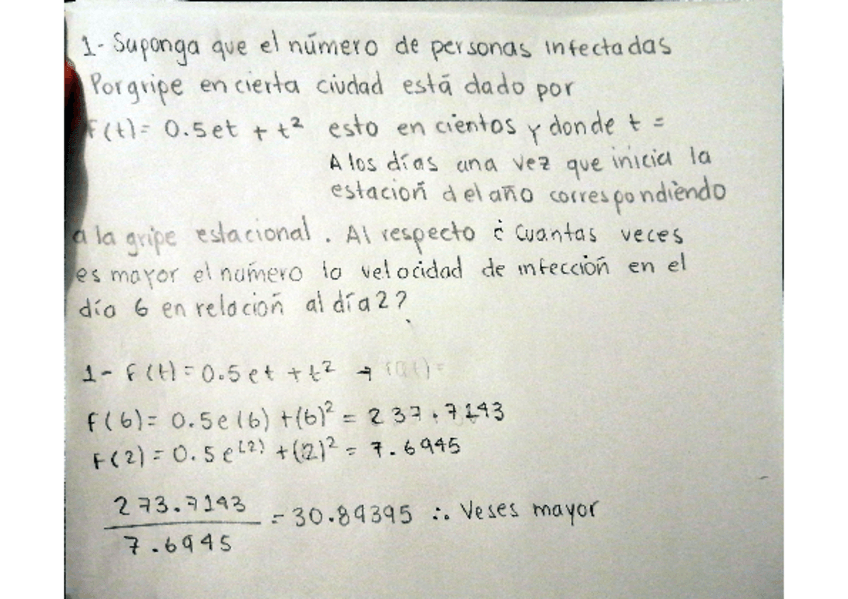 1- Suponga que el número de personas infectadas
Por gripe en cierta ciudad está dado por
F(t)= 0.5et + t² esto en cientos y donde t =
A los días una vez que inicia la
estación del año correspondiendo
a la gripe estacional. Al respecto ¿ Cuantas veces
es mayor el número la velocidad de infección en el
día 6 en relación al día 2?
1- F(t)=0.5et + t² →
F(6)= 0.5e(6) +(6)² = 237.7143
F(2)= 0.5e(2) +(2)² = 7.6945
273.7143
7.6945
= 30.89395 ∴ Veses mayor